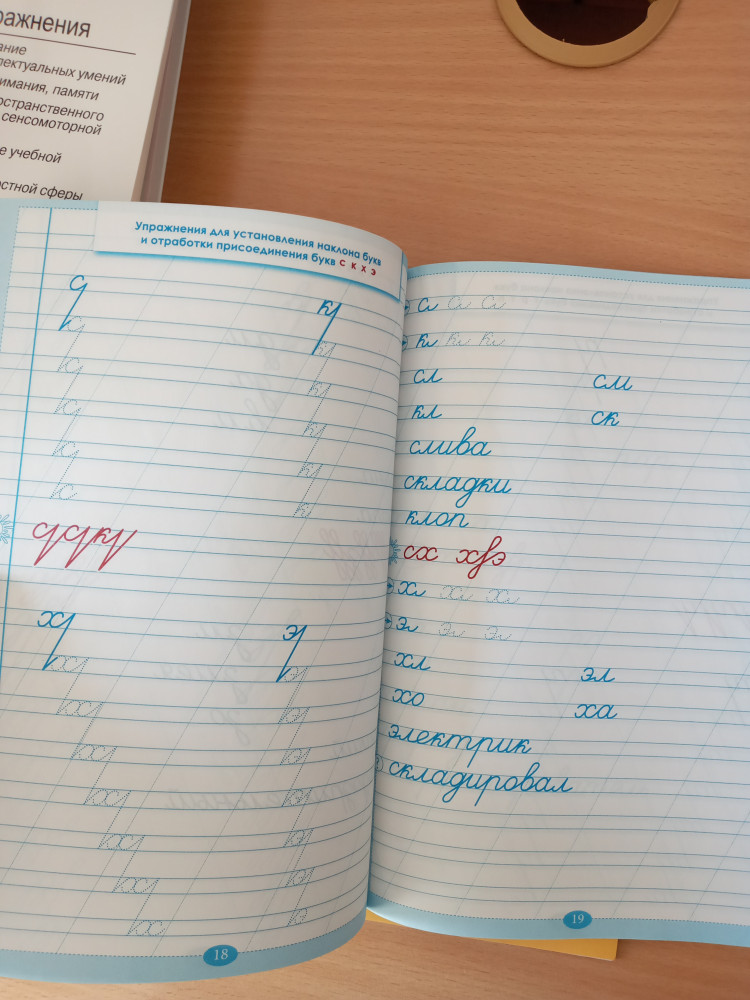 ражнения
ание
лектуальных умений
имания, памяти
остранственного
сенсомоторной
е учебной
стной сферы
Упражнения для установления наклона букв
и отработки присоединения букв с к х э
с к
х э
18
сл сл сл
кл кл кл
сл см
кл ск
слива
складки
клоп
сх хэ
хл хл хл
эл эл эл
хл эл
хо ха
электрик
складировал
19